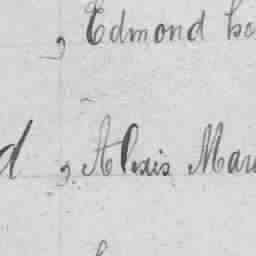 , Edmond
d , Alexis